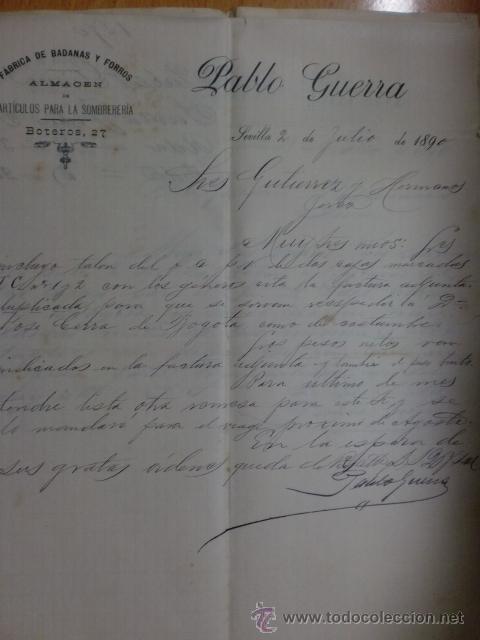 FABRICA DE BADANAS Y FORROS
ALMACEN
DE
ARTÍCULOS PARA LA SOMBRERERÍA
Boteros, 27
Pablo Guerra
Sevilla 2 de Julio de 1890
Sres Gutierrez y Hermanos
Muy Sres mios: Les
incluyo talon del f. c. de las dos cajas marcadas
con los generos esta la factura adjunta
duplicada para que se sirvan reespedir la á Dn
Jose de Bogotá como de costumbre.
Los pesos netos van
indicados en la factura adjunta y tambien el peso bruto.
Para último de mes
tendre lista otra remesa para este Sr y se
lo mandaré para el viaje proximo de Agosto.
En la espera de
sus gratas órdenes queda de
Pablo Guerra
www.todocoleccion.net